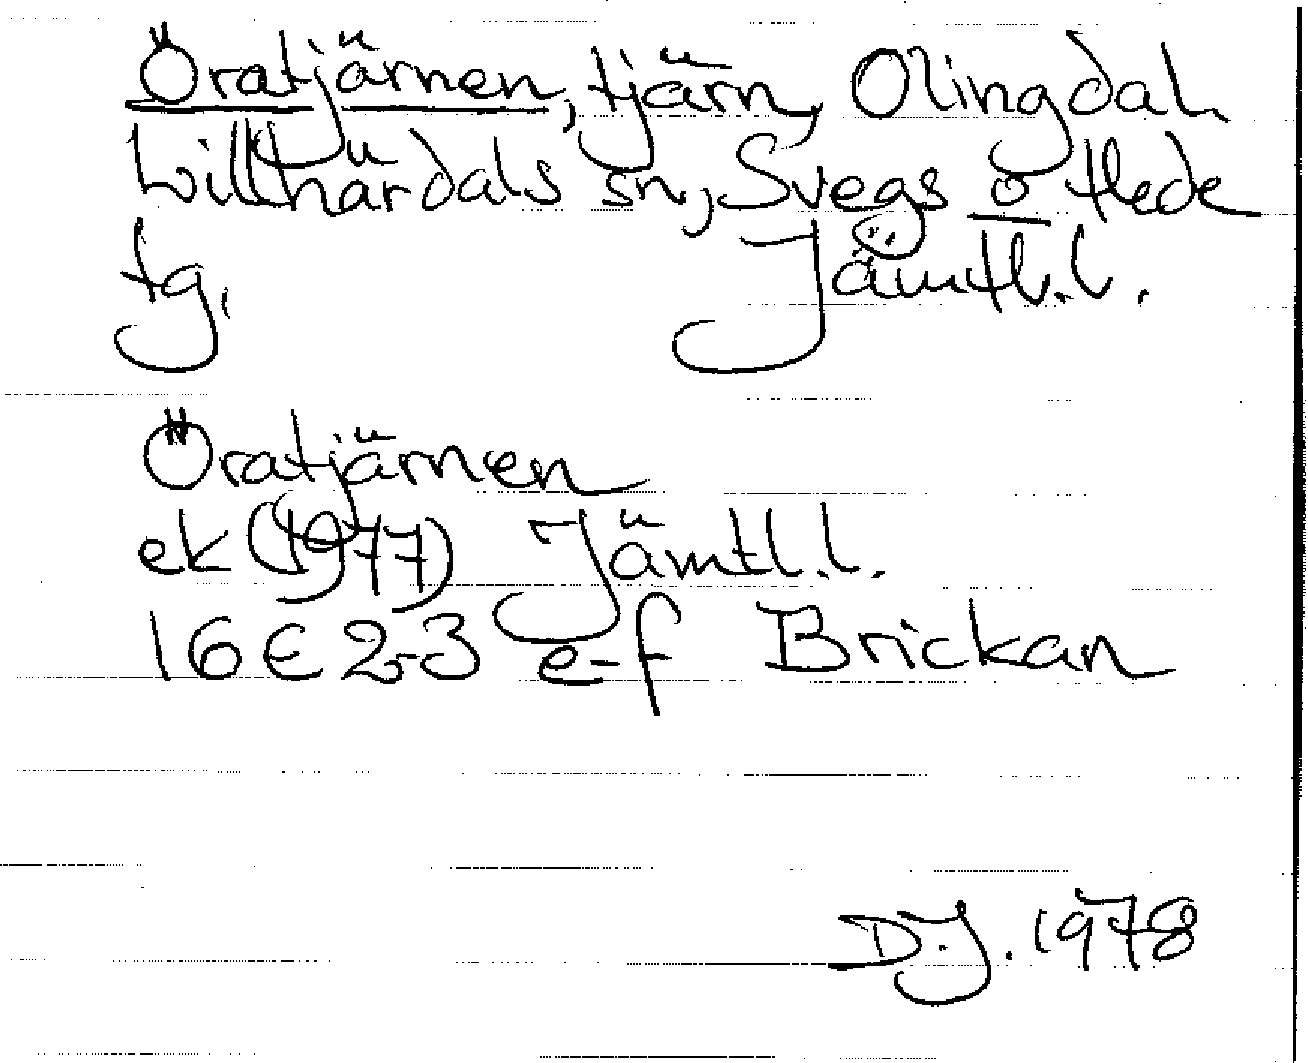 Öratjärnen, tjärn, Olingdal
Lillhärdals sn, Svegs o Hede
tg. Jämtl.l.
Öratjärnen
ek (1977) Jämtl.l.
16E 2-3 e-f Brickan
D.J. 1978